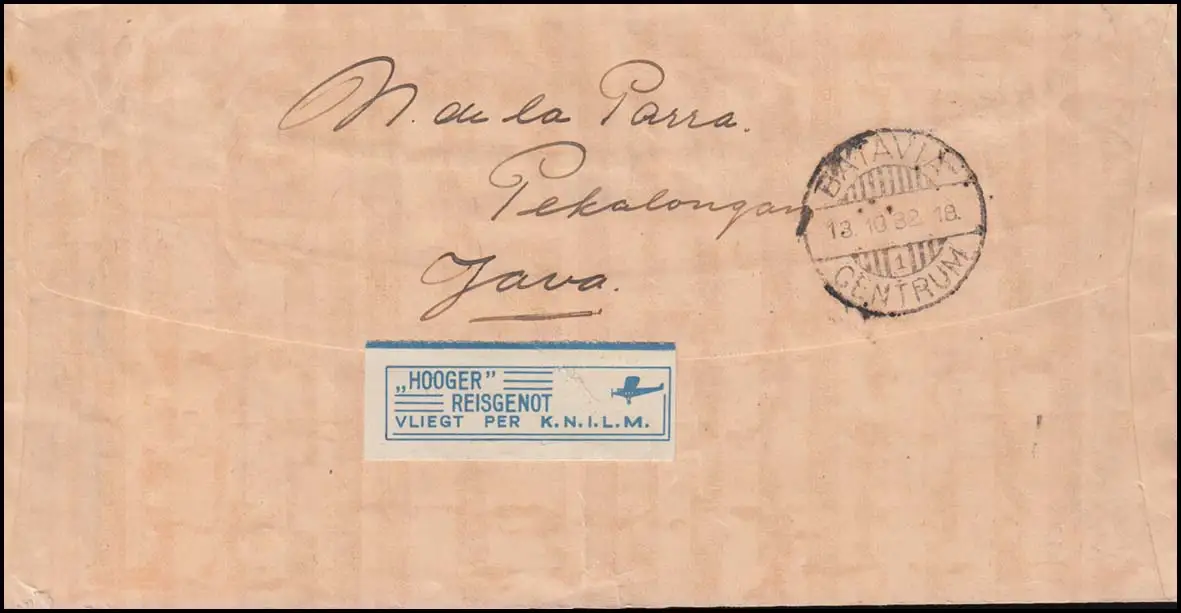 N. de la Parra.
Pekalongan
Java.
BATAVIA
13.10.32.18.
1
CENTRUM
„HOOGER”
REISGENOT
VLIEGT PER K.N.I.L.M.